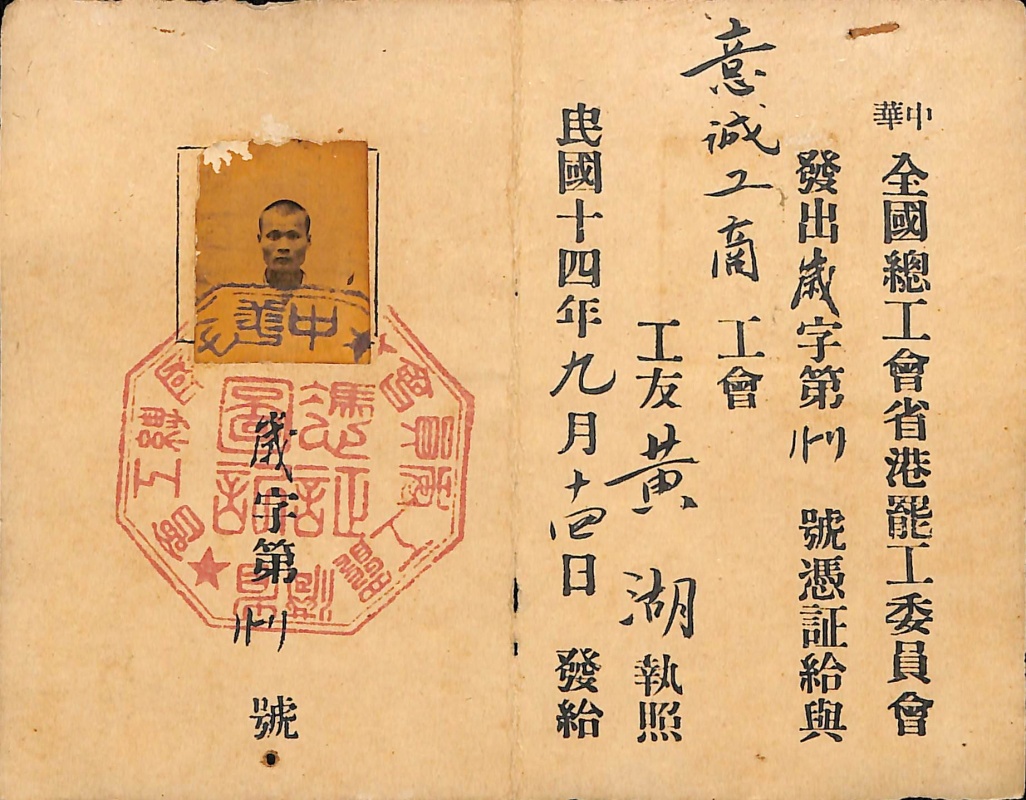 中華
全國總工會省港罷工委員會
發出歲字第 號憑証給與
意誠工商工會
工友黃湖執照
民國十四年九月十四日發給
歲字第 號
中華
憑証